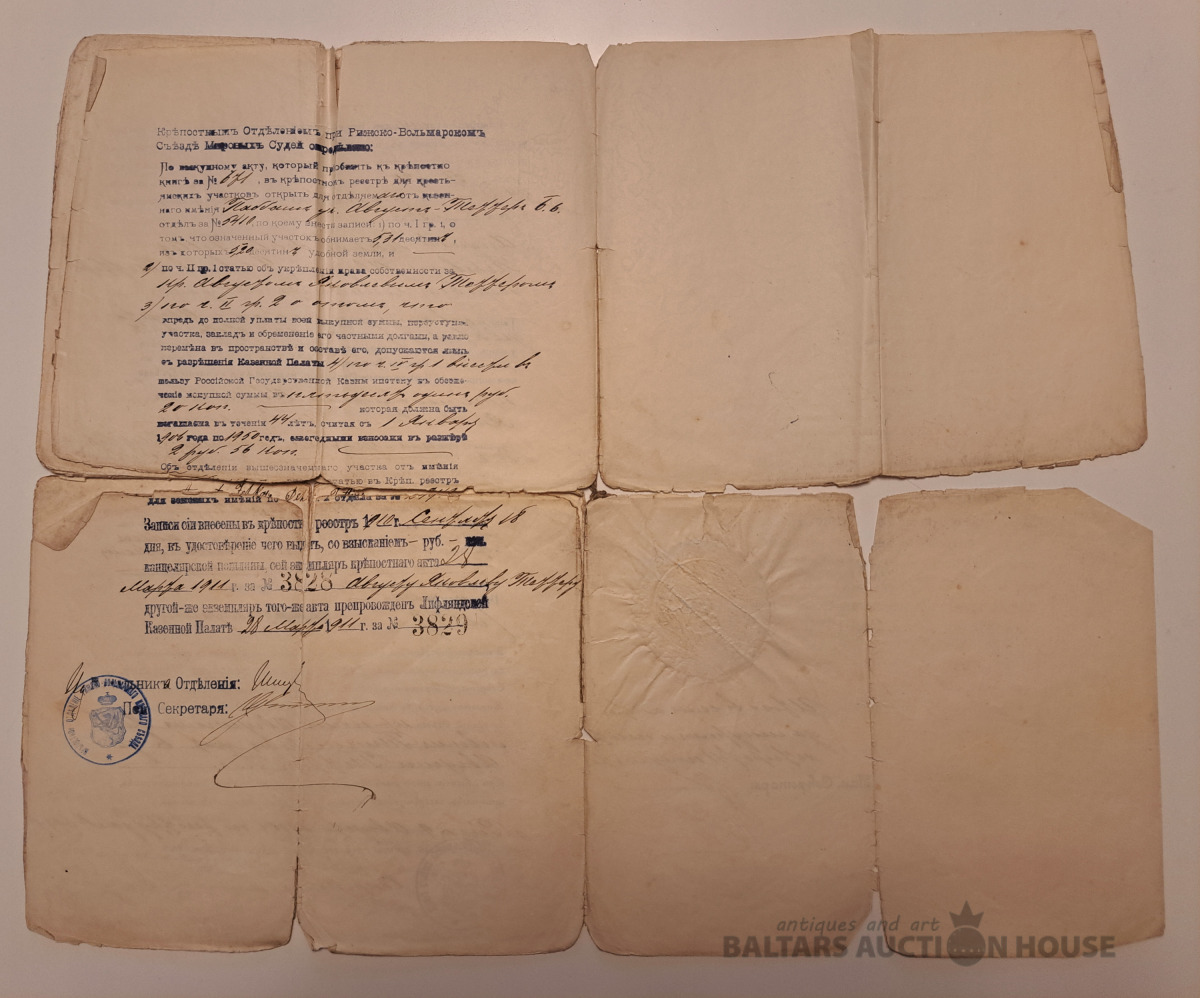 Крѣпостнымъ Отдѣленіемъ при Рижско-Вольмарскомъ
Съѣздѣ Мировыхъ Судей опредѣлено:
По выкупному акту, который пробить къ крѣпостно
книгѣ за № 671, въ крѣпостномъ реестрѣ для кресть-
янскихъ участковъ открыть для отдѣляемаго отъ казен-
наго имѣнія
отдѣлъ за № 5410, по коему внести записи: 1) по ч. I гр. 1, о
томъ что означенный участокъ обнимаетъ 5,91 десятинъ,
изъ которыхъ 5,30 десятинъ удобной земли, и
2) по ч. II гр. 1 статью об укрѣпленіи права собственности за
кр. Августомъ Яковлевымъ Тафферомъ
3) по ч. II гр. 2 о томъ, что
впредь до полной уплаты всей выкупной суммы, переуступка
участка, закладъ и обремененіе его частными долгами, а равно
перемѣна въ пространствѣ и составѣ его, допускаются лишь
съ разрѣшенія Казенной Палаты 4) по ч. IV гр. 1 внести въ
пользу Россійской Государственной Казны ипотеку въ обезпе-
ченіе выкупной суммы, въ пятьдесятъ одинъ руб.
20 коп. которая должна быть
погашена въ теченіи 44 лѣтъ, считая съ 1 Января
1906 года по 1950 годъ, ежегодными взносами въ размѣрѣ
2 руб. 56 коп.
Объ отдѣленіи вышеозначеннаго участка отъ имѣнія
статью въ Крѣп. реестръ
для имѣній по отдѣла за №
Записи сіи внесены въ крѣпостн реестръ 1910 г. Сентября 18
дня, въ удостовѣреніе чего выданъ, со взысканіемъ — руб. — коп.
канцелярской пошлины, сей экземпляръ крѣпостнаго акта 28
Марта 1911 г. за № 3828 Августу Яковлеву Тафферу
другой-же экземпляръ того-же акта препровожденъ Лифляндской
Казенной Палатѣ 28 Марта 1911 г. за № 3829
Отдѣленія:
Секретаря:
antiques and art
BALTARS AUCTION HOUSE